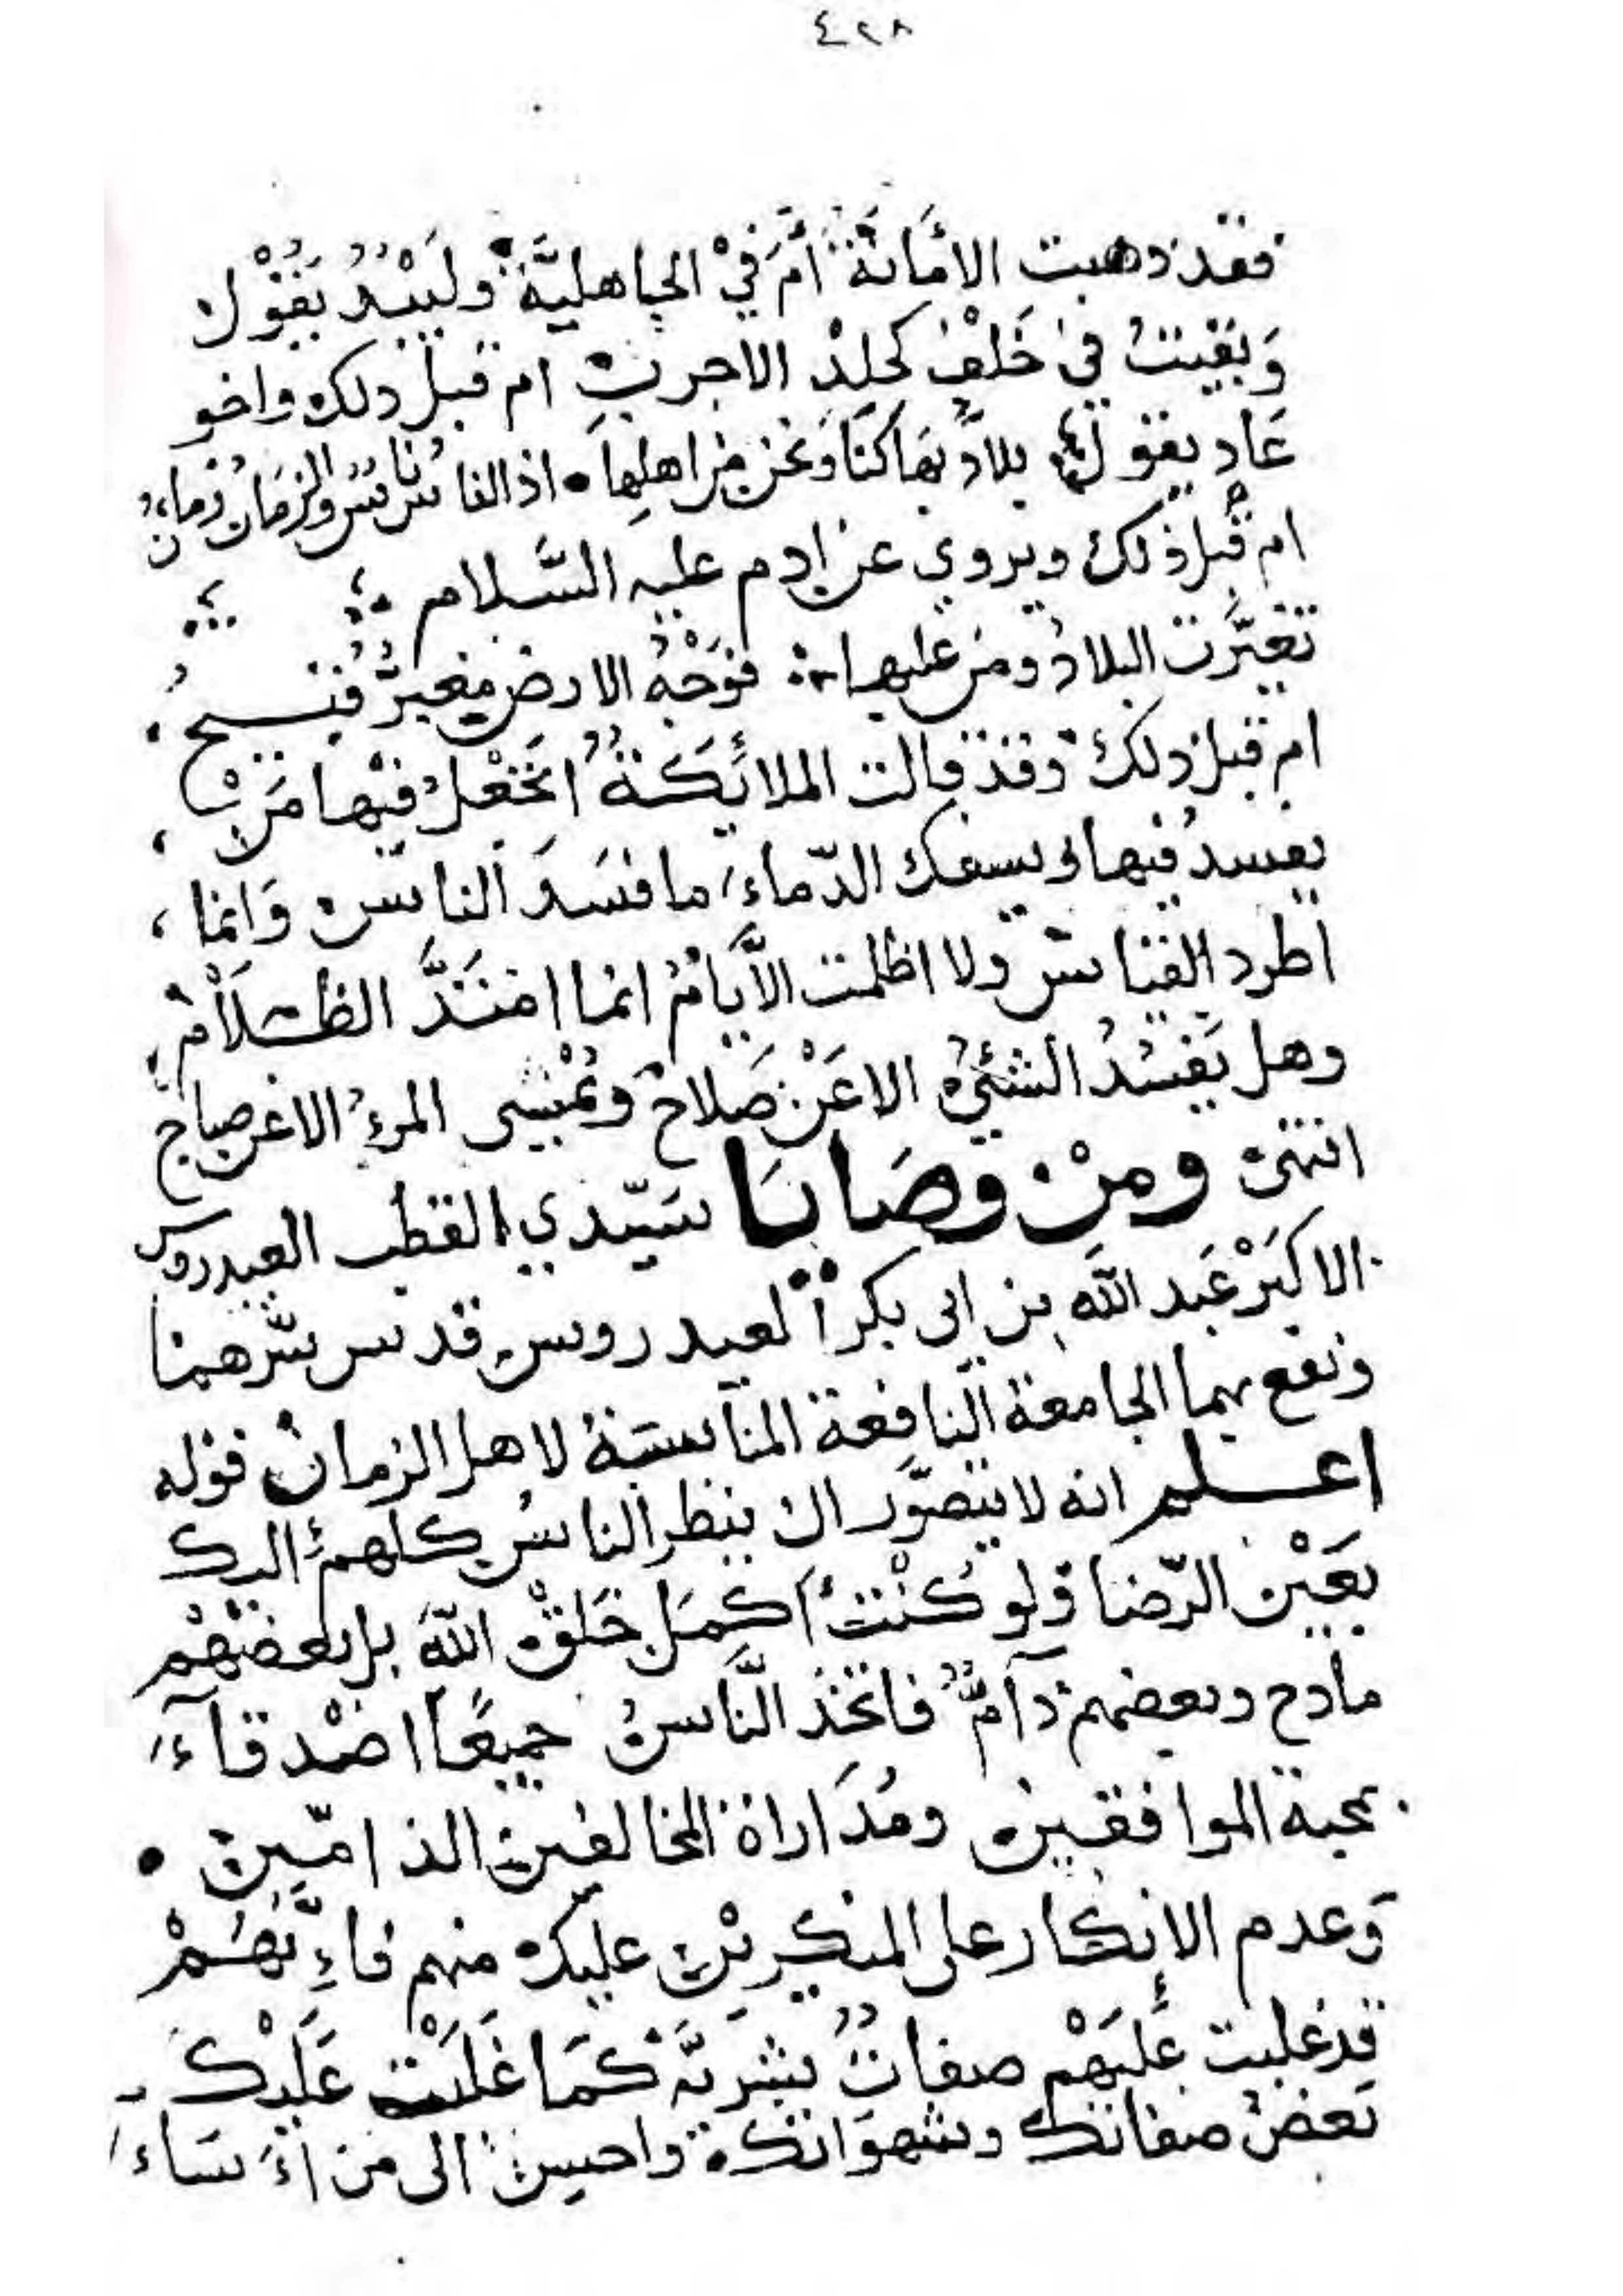 ٤٢٨
فقد ذهبت الأمانة أم في الجاهلية ولبيد يقول
وبقيت في خلف كجلد الاجرب ام قبل ذلك واخو
عاد يقول بلاد بها كنا ونحن من اهلها اذ الناس ناس والزمان زمان
ام قبل ذلك ويروي عن ادم عليه السلام
تغيرت البلاد ومن عليها فوجه الارض مغبر قبيح
ام قبل ذلك وقد قالت الملائكة اتجعل فيها من
يفسد فيها ويسفك الدماء ما فسد الناس وانما
اطرد القياس ولا اظلمت الأيام انما امتد الظلام
وهل يفسد الشيء الا عن صلاح ويمسى المرء الا عن صباح
انتهى ومن وصايا سيدي القطب العيدروس
الاكبر عبد الله بن ابي بكر العيدروس قدس سرهما
ونفع بهما الجامعة النافعة المناسبة لاهل الزمان قوله
اعلم انه لا يتصور ان ينظر الناس كلهم اليك
بعين الرضا ولو كنت اكمل خلق الله بل بعضهم
مادح وبعضهم ذآم فاتخذ الناس جميعا اصدقآء
بمحبة الموافقين ومداراة المخالفين الذامين
وعدم الانكار على المنكرين عليك منهم فإنهم
قد غلبت عليهم صفات بشرية كما غلبت عليك
بعض صفاتك وشهواتك واحسن الى من اساء